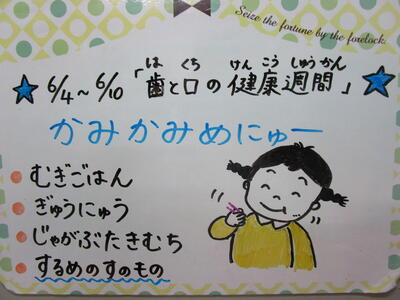 Seize the fortune by the forelock.
は くち けん こう しゅう かん
★ 6/4~6/10 「歯と口の健康週間」★
かみかみめにゅー
むぎごはん
ぎゅうにゅう
じゃがぶたきむち
するめのすのもの